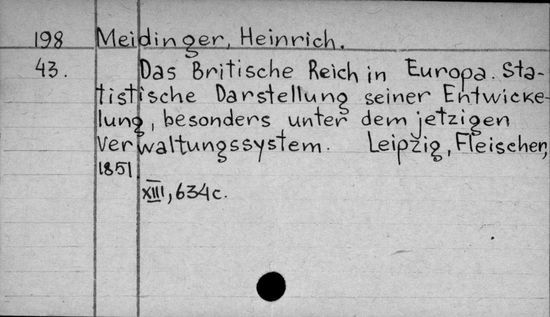 198 Meidinger, Heinrich.
43. Das Britische Reich in Europa. Sta-
tistische Darstellung seiner Entwicke-
lung, besonders unter dem jetzigen
Verwaltungssystem. Leipzig, Fleischer,
1851.
XIII, 634c.